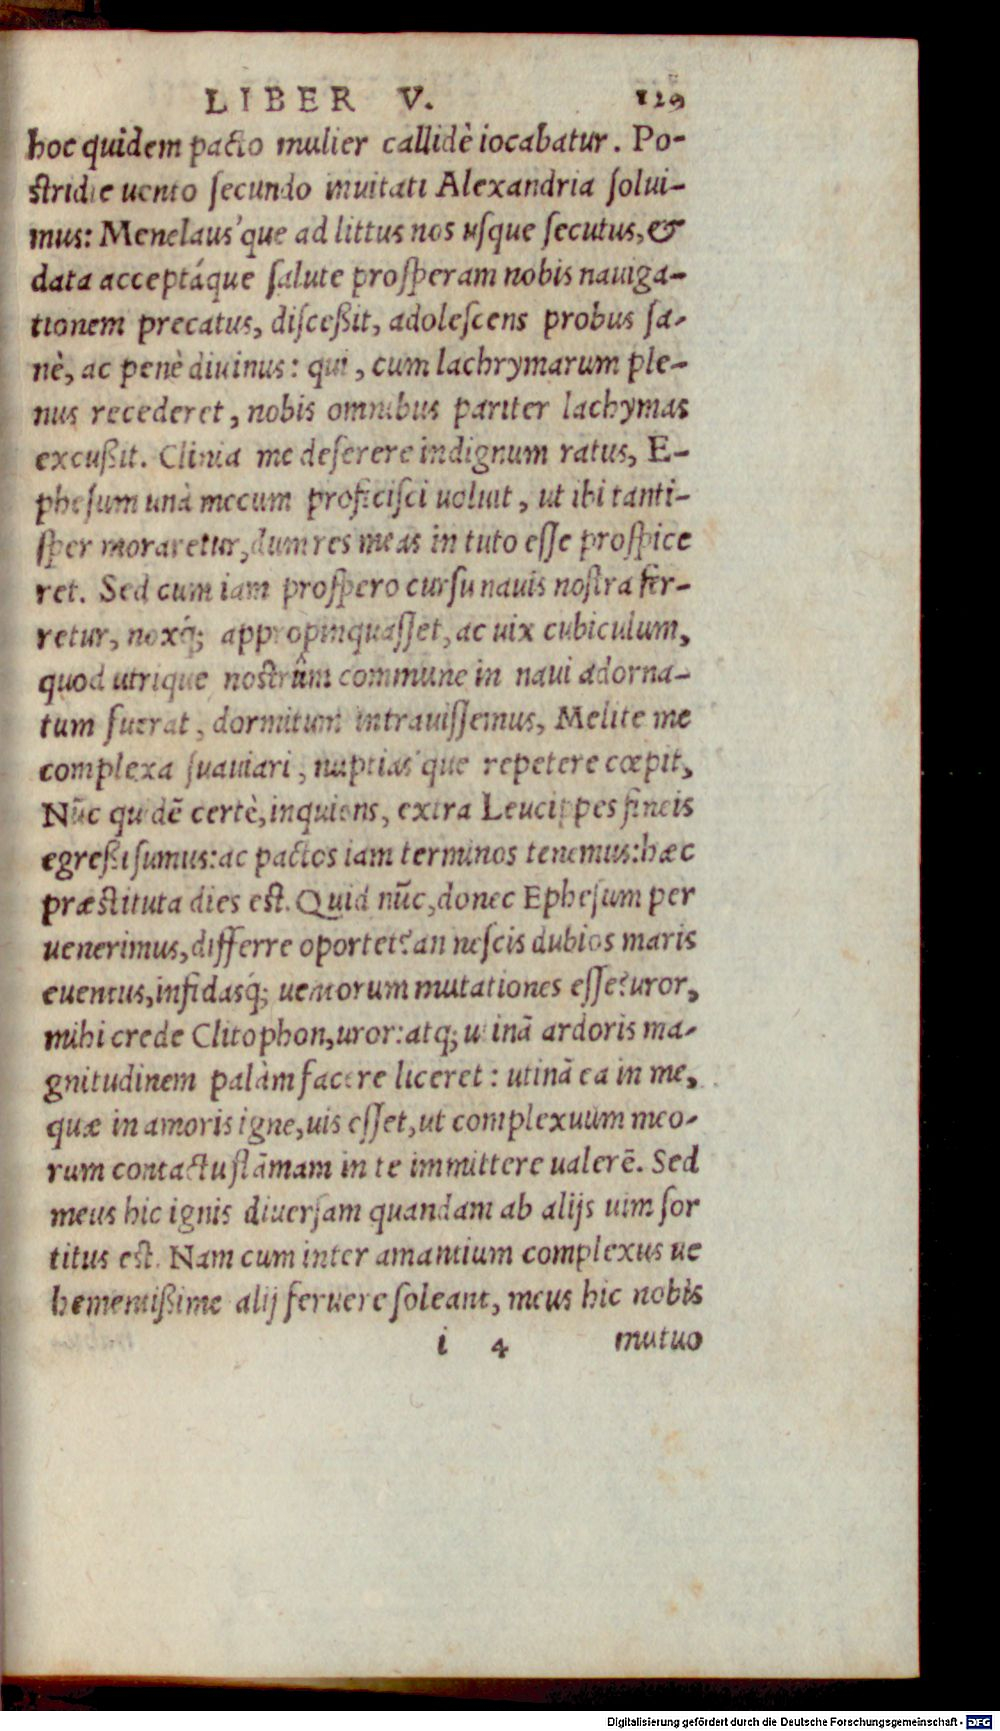 LIBER V. 129
hoc quidem pacto mulier callidè iocabatur. Po-
stridie uento secundo inuitati Alexandria solui-
mus: Menelaus'que ad littus nos usque secutus, &
data acceptáque salute prosperam nobis nauiga-
tionem precatus, disceßit, adolescens probus sa-
nè, ac penè diuinus: qui, cum lachrymarum ple-
nus recederet, nobis omnibus pariter lachymas
excußit. Clinia me deserere indignum ratus, E-
phesum unà mecum proficisci uoluit, ut ibi tanti-
sper moraretur, dum res meas in tuto esse prospice
ret. Sed cum iam prospero cursu nauis nostra fer-
retur, noxq́; appropinquasset, ac uix cubiculum,
quod utrique nostrûm commune in naui adorna-
tum fuerat, dormitum intrauissemus, Melite me
complexa suauiari, nuptias'que repetere cœpit,
Nũc quidẽ certè, inquiens, extra Leucippes fineis
egreßi sumus: ac pactos iam terminos tenemus: hæc
præstituta dies est. Quid nũc, donec Ephesum per
uenerimus, differre oportet? an nescis dubios maris
euentus, infidasq́; uentorum mutationes esse? uror,
mihi crede Clitophon, uror: atq; utinã ardoris ma-
gnitudinem palàm facere liceret: utinã ea in me,
quæ in amoris igne, uis esset, ut complexuum meo-
rum contactu flãmam in te immittere ualerẽ. Sed
meus hic ignis diuersam quandam ab alijs uim sor
titus est. Nam cum inter amantium complexus ue
hementißime alij feruere soleant, meus hic nobis
i 4 mutuo
Digitalisierung gefördert durch die Deutsche Forschungsgemeinschaft - DFG